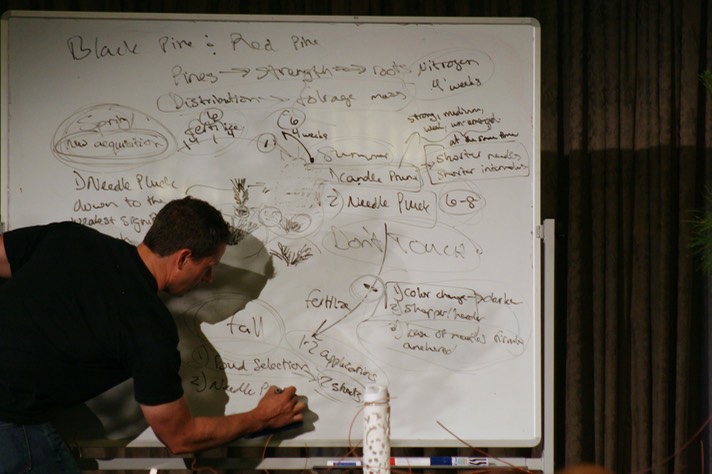 Black Pine : Red Pine
Pines → strength → roots
Nitrogen
4 weeks
Distribution → foliage mass
Spring
new acquisition
6
fertilize
6
4 weeks
strong, medium,
weak,
at the same time
1
Summer
shorter needles
shorter internodes
1) Candle Prune
2) Needle Pluck
6-8
1) Needle Pluck
down to the
weakest
Don't Touch
fertilize
1) color change → darker
2) sharper/harder
3) base of needles
anchored
fall
1-2 applications
1) Bud Selection → 2 shoots
2) Needle P